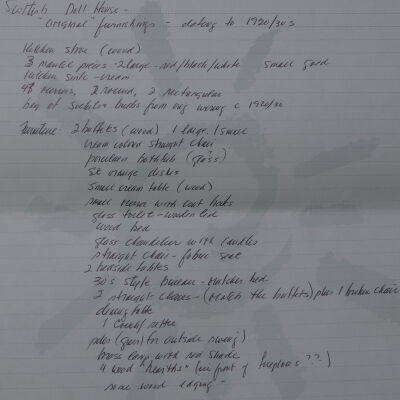 Scottish Doll House -
"Original" furnishings - dating to 1920/30s
Kitchen stove (wood)
3 mantel pieces - 2 large - red/black/white small gold
kitchen sink - cream
4 mirrors, 2 round, 2 rectangular
bag of bulbs from orig wiring c 1920/30
Furniture: 2 buffets (wood) 1 large, 1 small
cream colored straight chair
porcelain bathtub (glass?)
orange dishes
small cream table (wood)
small mirror with coat hooks
glass toilet - wooden lid
wood bed
glass chandelier with candles
straight chair - fabric seat
2 bedside tables
30's style bureau - matches bed
2 straight chairs - (match the buffets) plus 1 broken chair
dining table
1 couch/settee
poles (green) for outside swing)
brass lamp with red shade
4 wood "hearths" (in front of fireplaces??)
some wood edging -